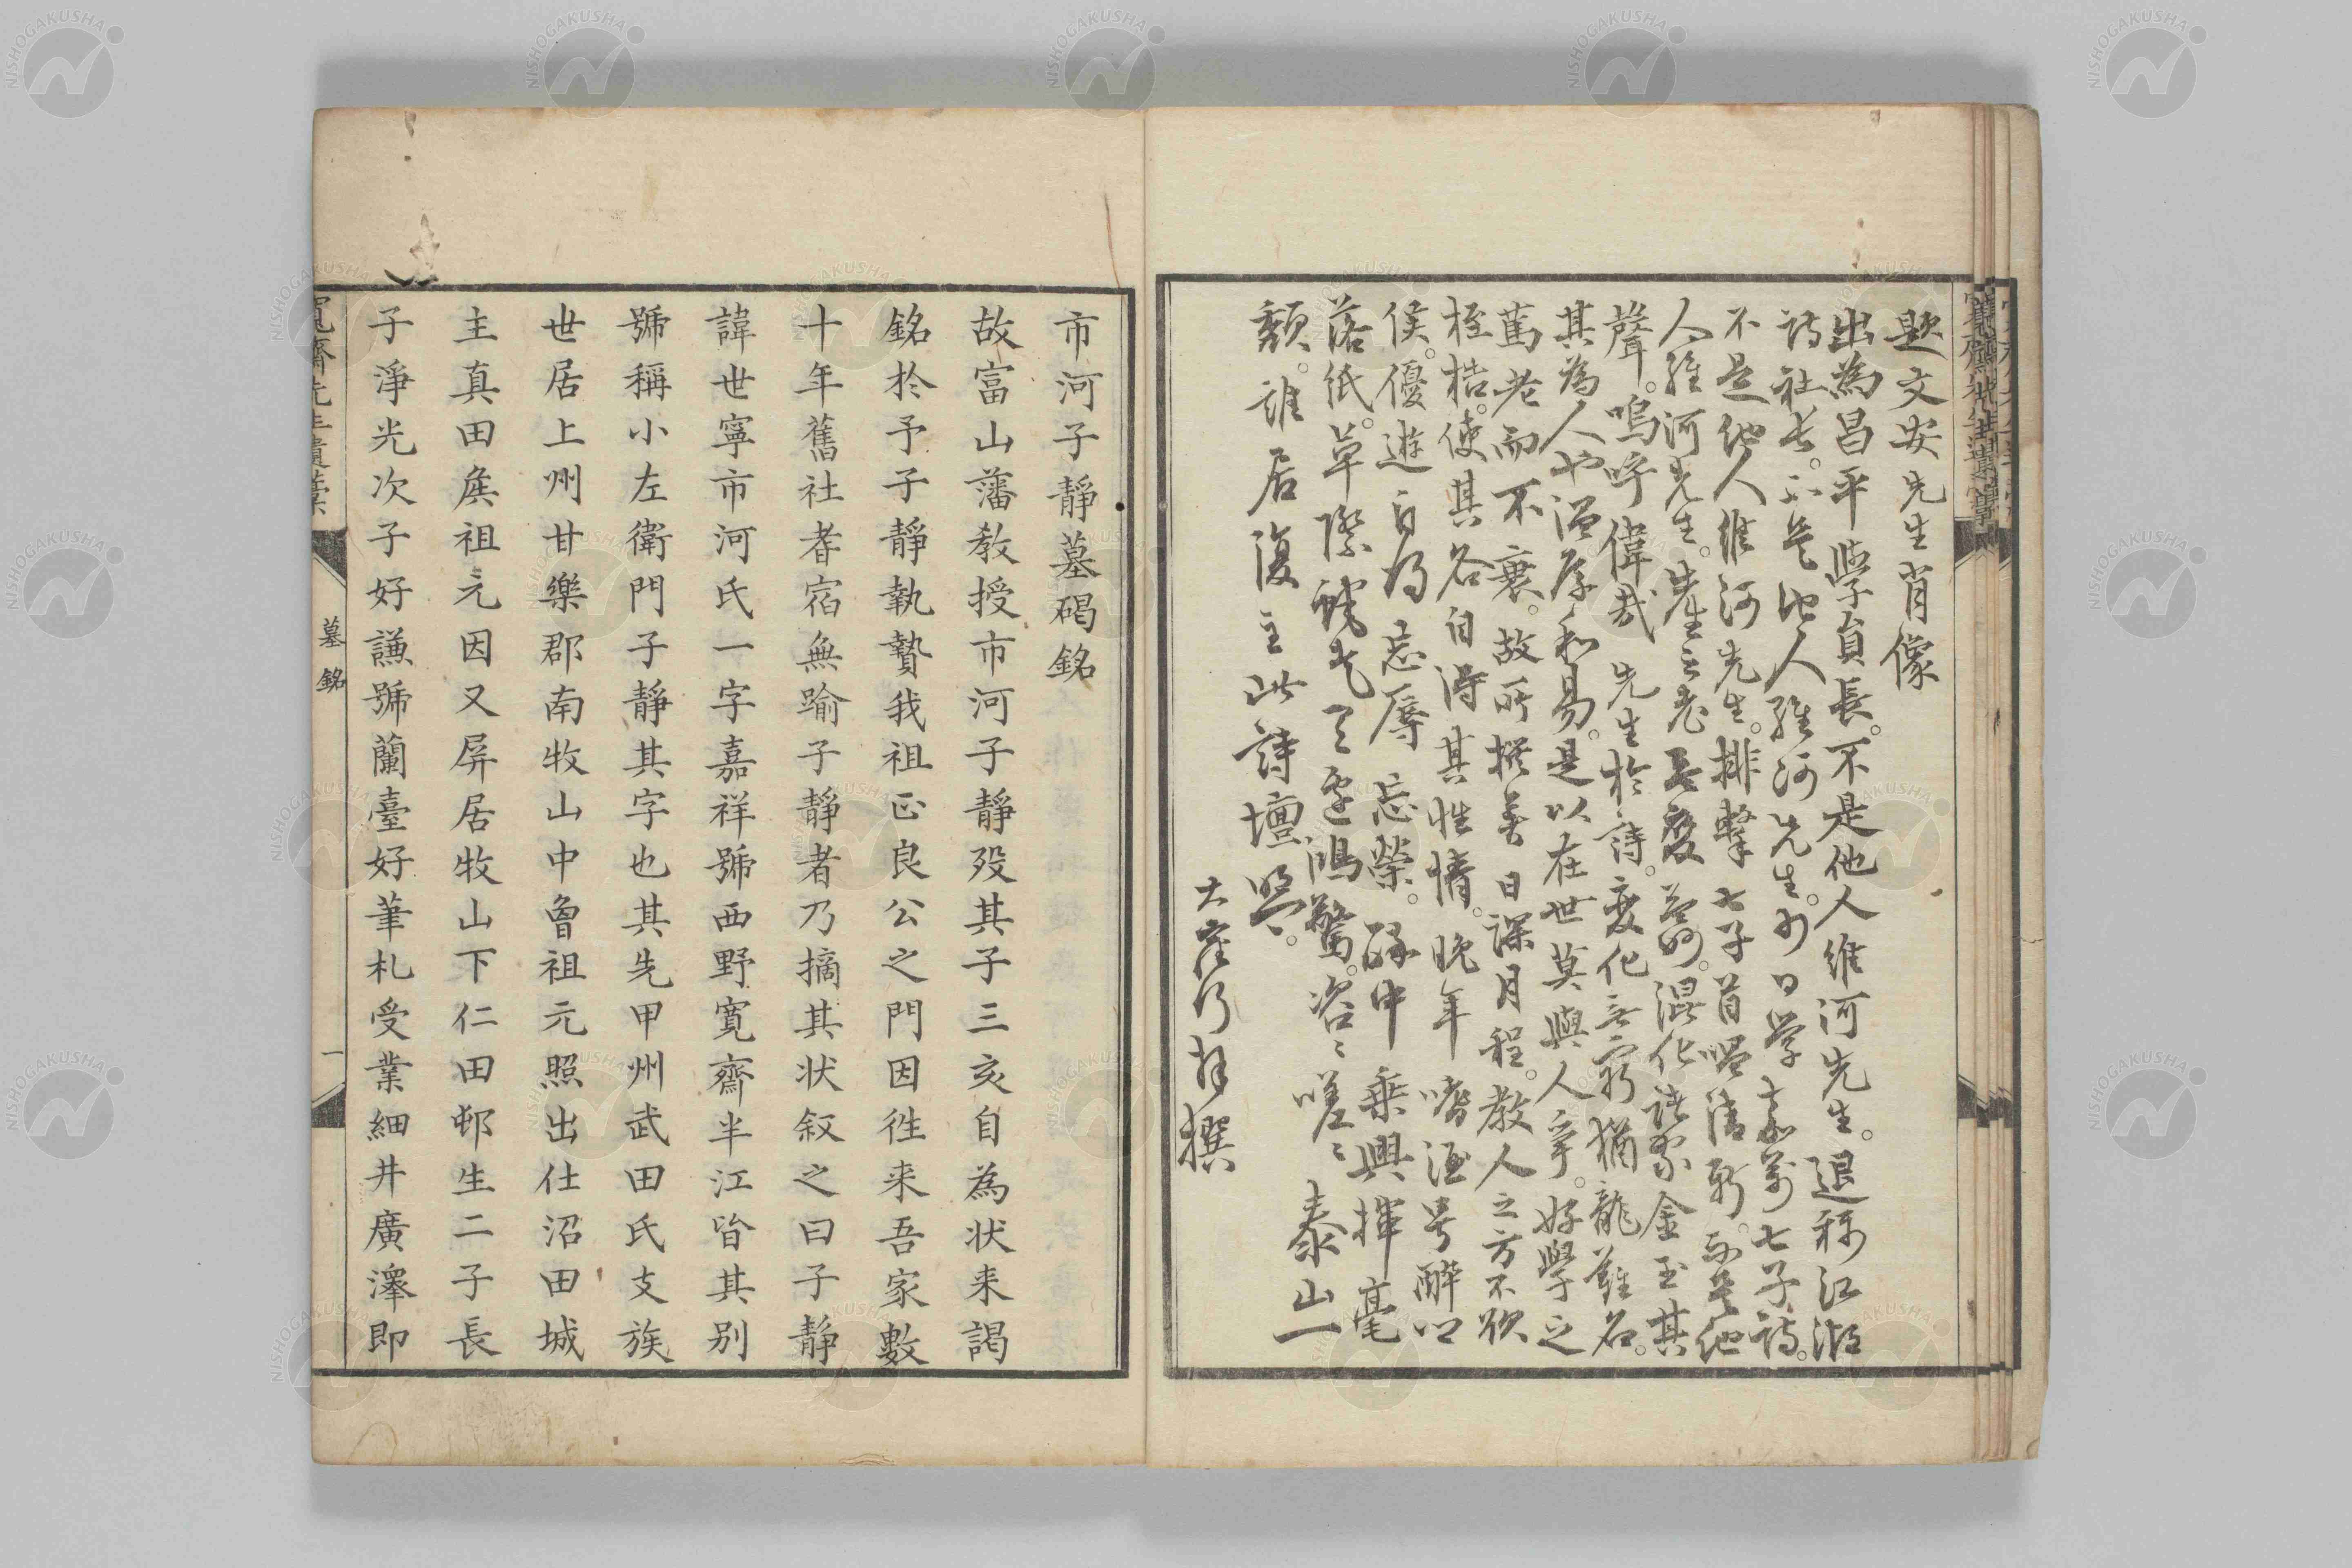 題文安先生肖像
出為昌平學員長。不是他人維河先生。退称江湖
詩社長。不是他人維河先生。少日学高葛七子詩。
不是他人維河先生。排擊七子首唱清新。不是他
人維河先生。先生之老益混化諸家金玉其
聲。嗚呼偉哉先生於詩。変化無窮猶龍難名。
其為人也温厚和易。是以在世莫與人爭。好學之
篤老而不衰。故所撰著日深月程。教人之方不欲
桎梏。使其各自得其性情。晩年嗜酒号醉
侯。優遊自得忘辱忘榮。酔中乗興揮毫
落紙。草際蛇走天邊鴻驚。咨〻嗟〻泰山一
頽。誰居復主此詩壇盟。
大窪行拜撰
市河子靜墓碣銘
故富山藩教授市河子靜歿其子三亥自為状来謁
銘於予子靜執贄我祖正良公之門因徃来吾家數
十年舊社耆宿無踰子靜者乃摘其状叙之曰子靜
諱世寧市河氏一字嘉祥號西野寬齋半江皆其別
號稱小左衛門子靜其字也其先甲州武田氏支族
世居上州甘樂郡南牧山中曾祖元照出仕沼田城
主真田矦祖元因又屏居牧山下仁田邨生二子長
子淨光次子好謙號蘭臺好筆札受業細井廣澤即
寬齋先生遺稾
墓銘
一